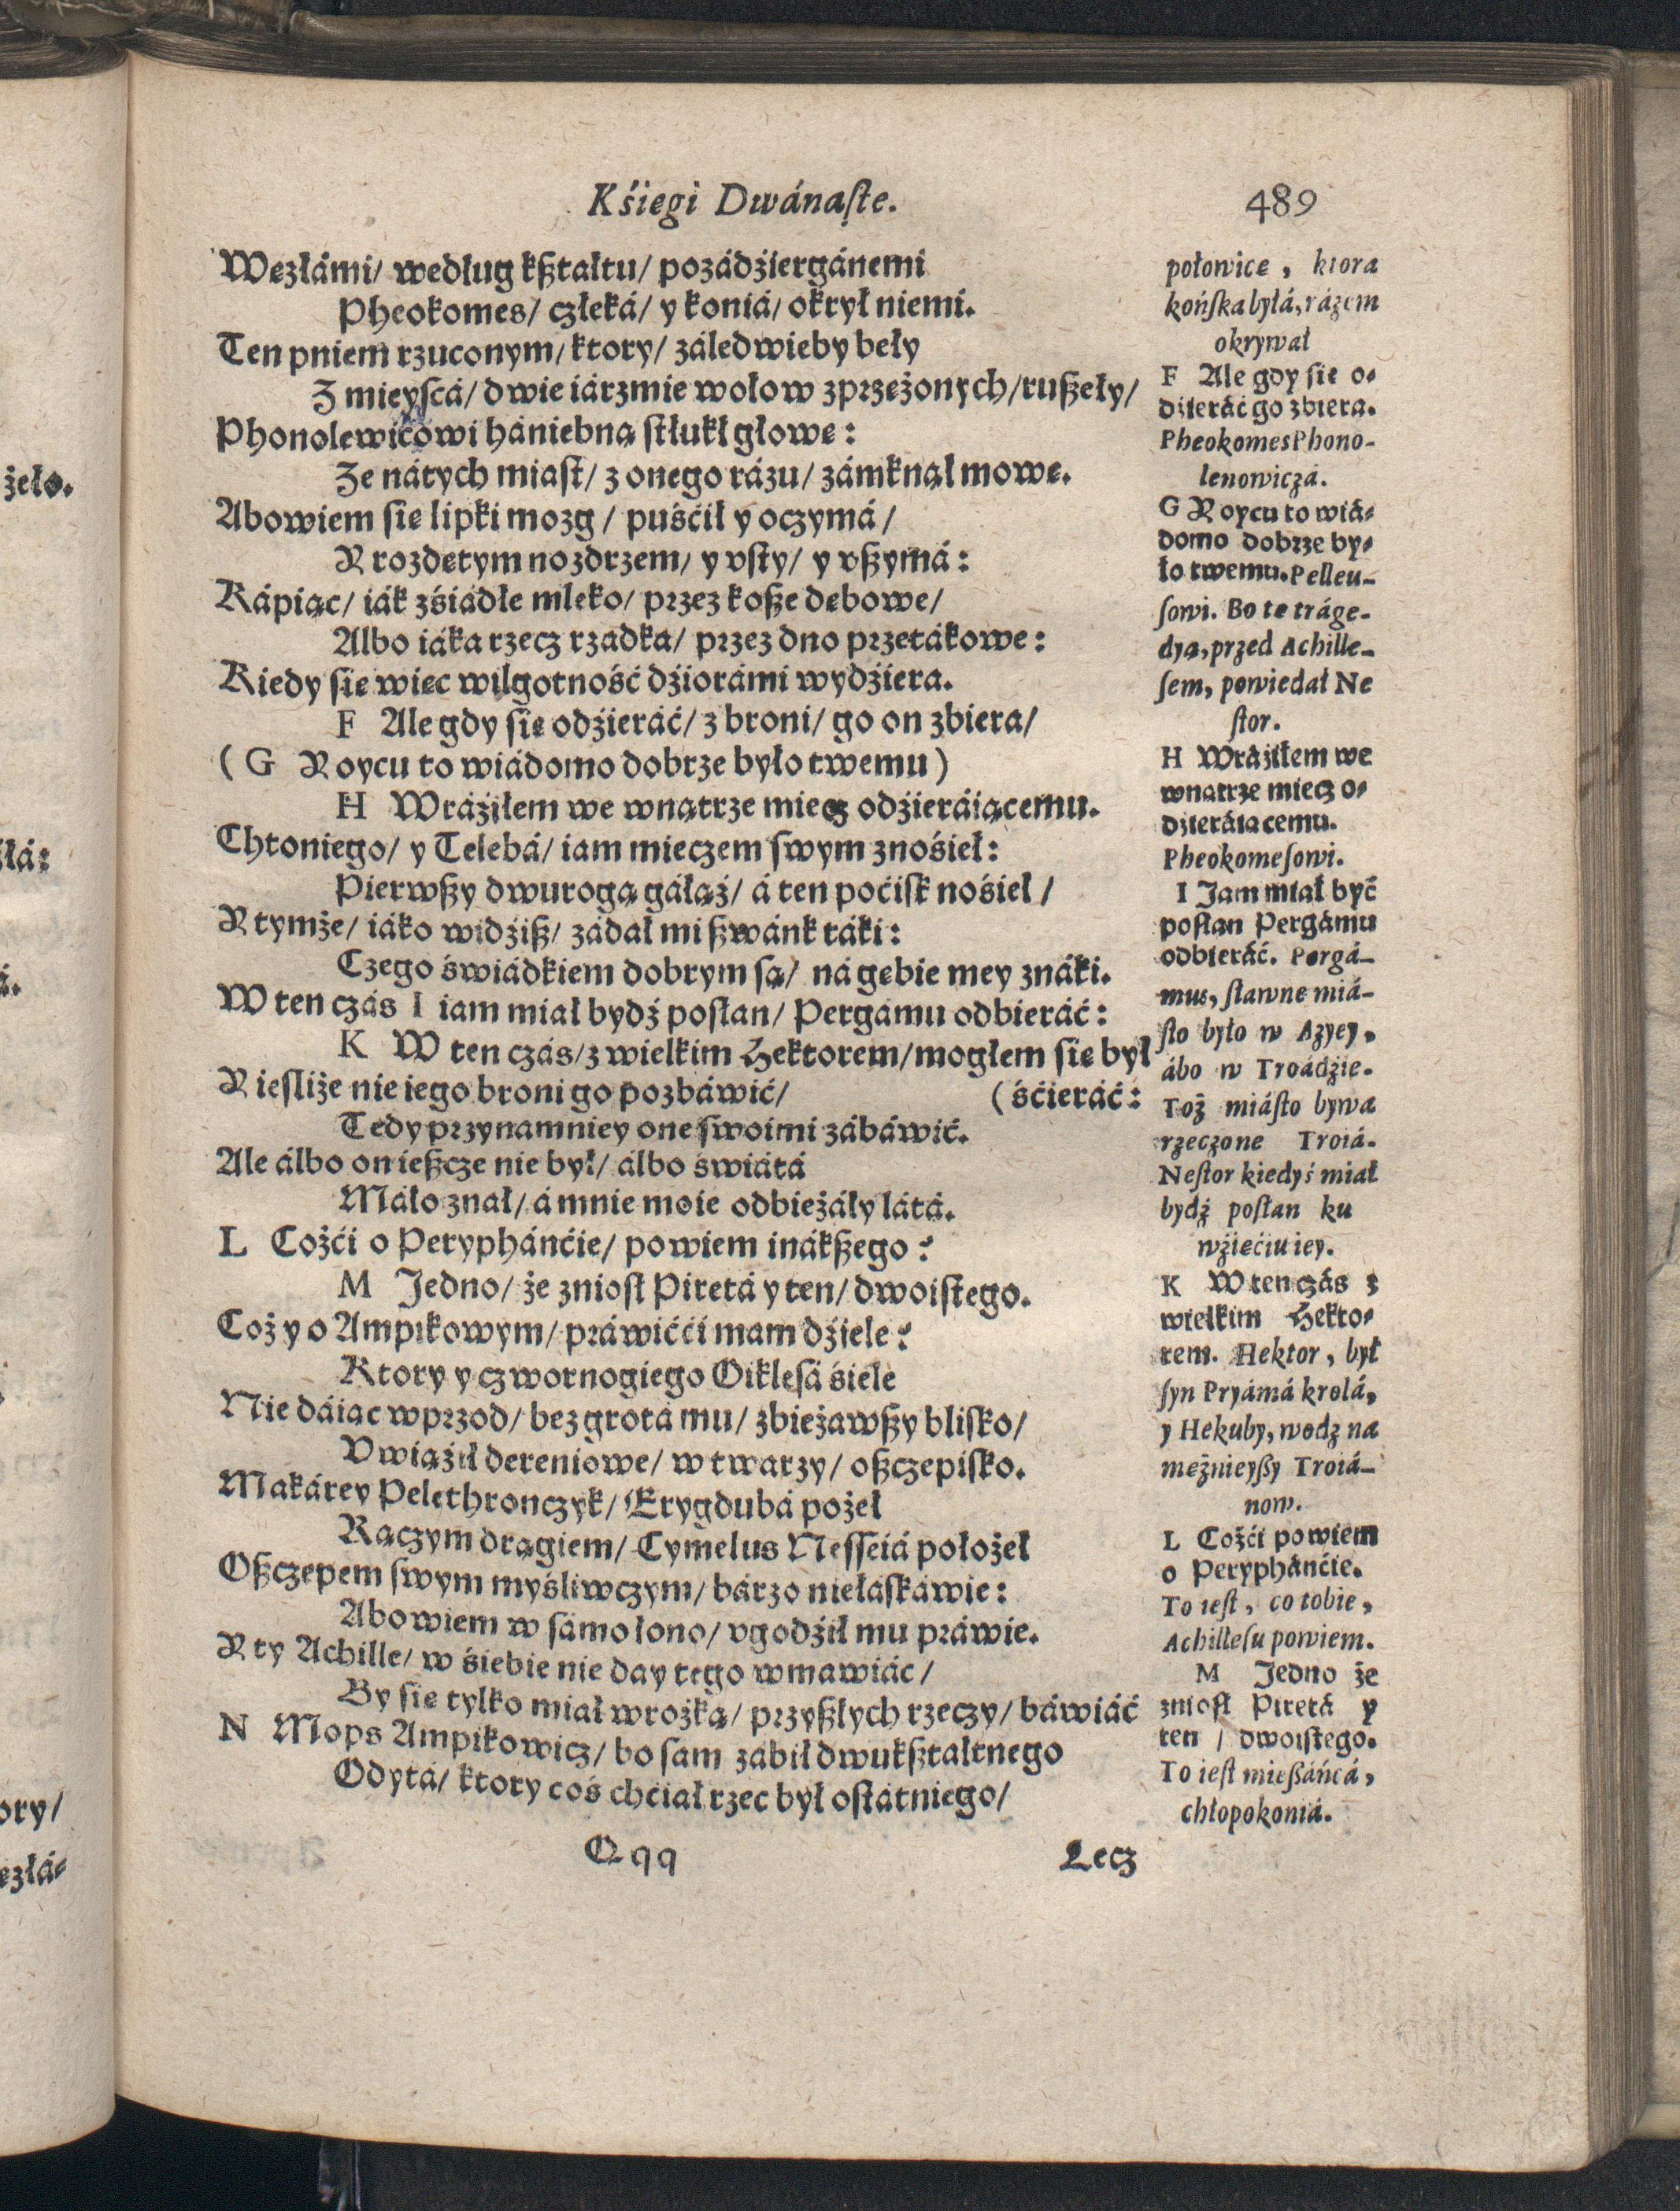 Kśiegi Dwánaſte.
489
Węzłámi/ według kßtałtu/ pozádźiergánemi
Pheokomes/ człeká/ y koniá/ okrył niemi.
Ten pniem rzuconym/ ktory/ záledwieby beły
Z mieyſcá/ dwie iárzmie wołow zprzeżonych/ rußeły/
Phonolewicowi hániebną ſtłukł głowę:
Że nátych miaſt/ z onego rázu/ zámknął mowę.
Abowiem ſię lipki mozg/ puśćił y oczymá/
Y rozdętym nozdrzem/ y vſty/ y vßymá:
Kápiąc/ iák zśiádłe mleko/ przez koße dębowe/
Albo iáka rzecz rzadka/ przez dno przetákowe:
Kiedy ſię więc wilgotność dźiorámi wydźiera.
F Ale gdy ſię odźieráć/ z broni/ go on zbiera/
(G Y oycu to wiádomo dobrze było twemu)
H Wráźiłem we wnątrze miecz odźieráiącemu.
Chtoniego/ y Telebá/ iam mieczem ſwym znośieł:
Pierwßy dwurogą gáłąź/ á ten poćiſk nośieł/
Y tymże/ iáko widźiß/ zádał mi ßwánk táki:
Czego świádkiem dobrym ſą/ ná gębie mey znáki.
W ten czás I iam miał bydź poſłan/ Pergámu odbieráć:
K W ten czás/ z wielkim Hektorem/ mogłem ſię był
Y ieſliże nie iego broni go pozbáwić/ (śćieráć:
Tedy przynamniey onę ſwoimi zábáwić.
Ale álbo on ießcze nie był/ álbo świátá
Máło znał/ á mnie moie odbieżáły látá.
L Cożći o Peryphánćie/ powiem inákßego?
M Jedno/ że znioſł Piretá y ten/ dwoiſtego.
Coż y o Ampikowym/ práwićći mam dźiele?
Ktory y czwornogiego Oikleſá śiele
Nie dáiąc wprzod/ bez grotá mu/ zbieżawßy bliſko/
Vwiąźił dereniowe/ w twarzy/ oßczepiſko.
Makárey Pelethronczyk/ Erygdubá pożeł
Rączym drągiem/ Cymelus Neſſeiá położeł
Oßczepem ſwym myśliwczym/ bárzo niełáſkáwie:
Abowiem w ſámo łono/ vgodźił mu práwie.
Y ty Achille/ w śiebie nie day tego wmawiáć/
By ſię tylko miał wrożką/ przyßłych rzeczy/ báwiáć
N Mops Ampikowicz/ bo ſam zábił dwukſztałtnego
Odytá/ ktory coś chćiał rzec był oſtátniego/
Qqq
Lecz
połowice, ktora
końſka byłá, rázem
okrywał
F Ale gdy ſię o-
dźieráć go zbiera.
Pheokomes Phono-
lenowiczá.
G Y oycu to wiá-
domo dobrze by-
ło twemu. Pelleu-
ſowi. Bo tę tráge-
dyą, przed Achille-
ſem, powiedał Ne
ſtor.
H Wráźiłem we
wnątrze miecz o-
dźieráiącemu.
Pheokomeſowi.
I Jam miał być
poſłan Pergámu
odbieráć. Pergá-
mus, ſławne miá-
ſto było w Azyey,
ábo w Troádźie.
Toż miáſto bywa
rzeczone Troiá.
Neſtor kiedyś miał
bydź poſłan ku
wźięćiu iey.
K W ten czás z
wielkim Hekto-
rem. Hektor, był
ſyn Pryámá krolá,
y Hekuby, wodz na
mężnieyßy Troiá-
now.
L Cożći powiem
o Peryphánćie.
To ieſt, co tobie,
Achilleſu powiem.
M Jedno że
znioſł Piretá y
ten / dwoiſtego.
To ieſt mießáńcá,
chłopokoniá.
żeło.
ory/
ezłá-